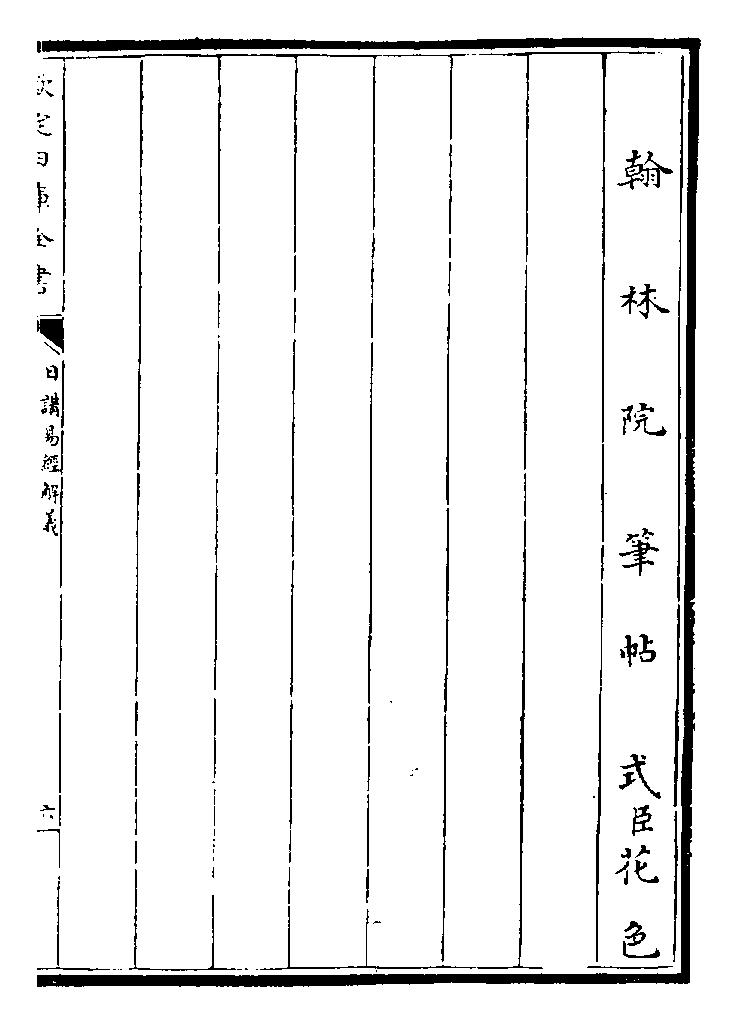 翰林院筆帖式臣花色
欽定四庫全書
日講易經解義
六